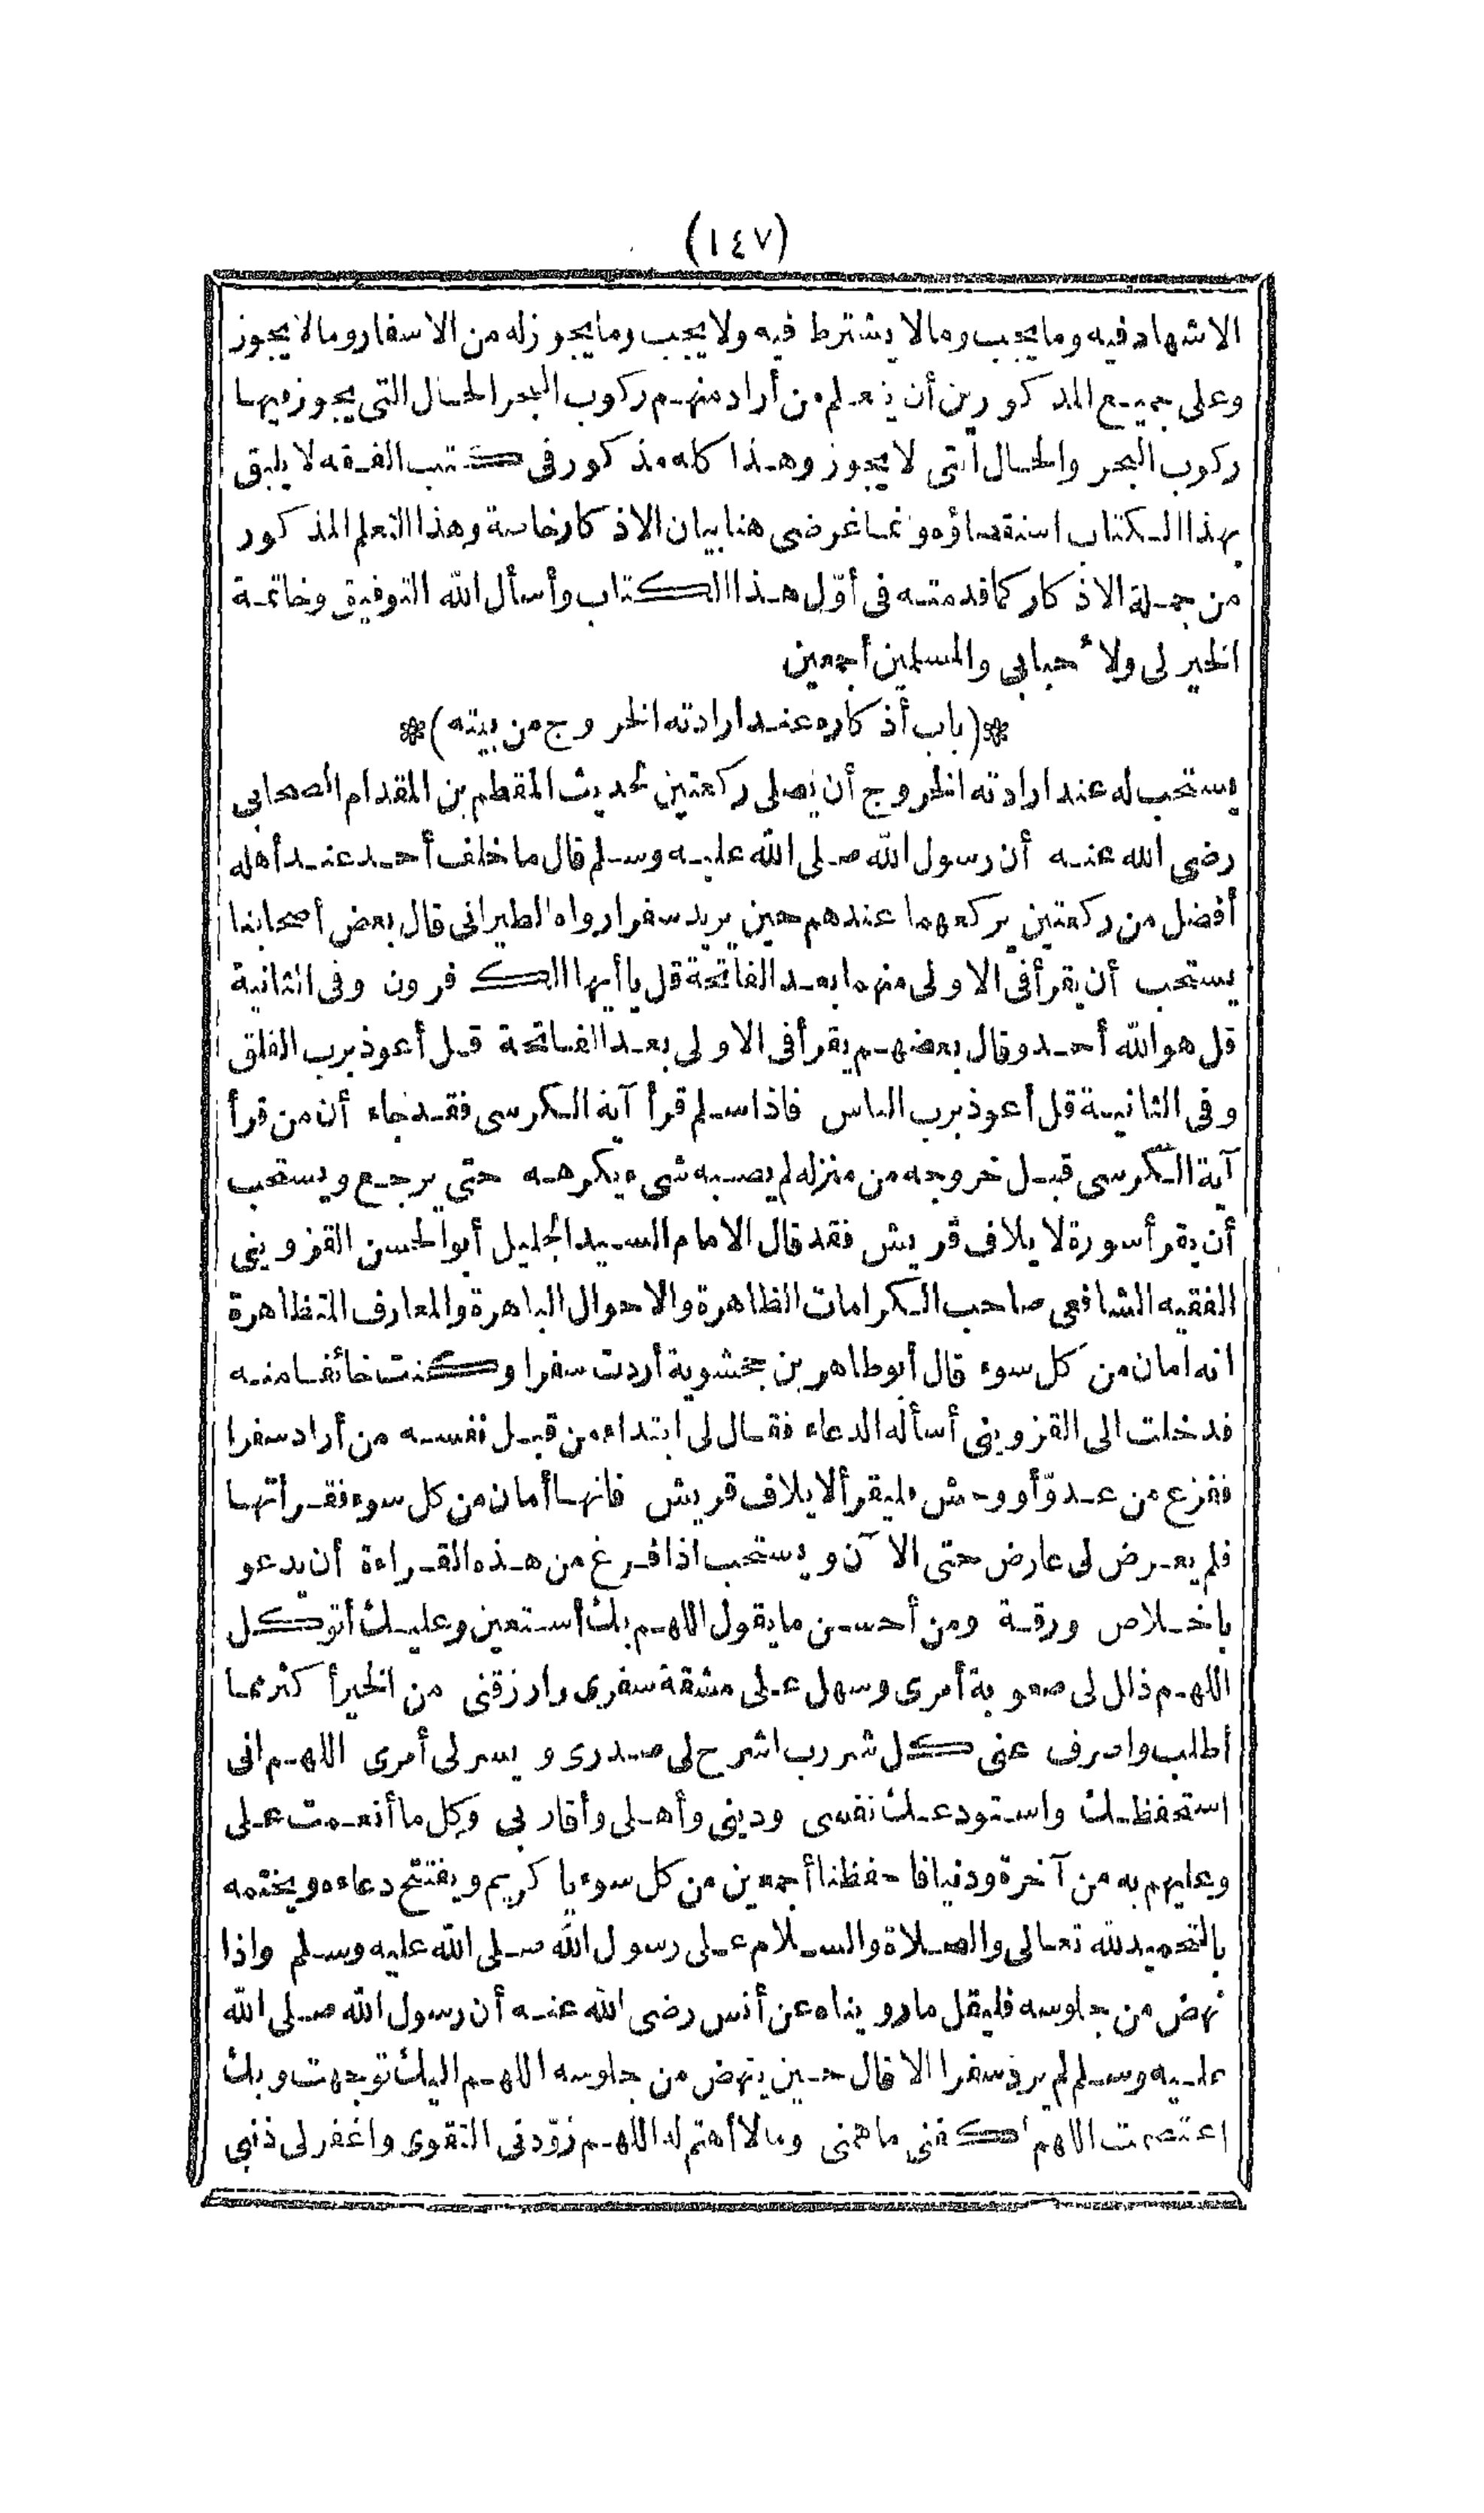 (١٤٧)
الاشهاد فيه وما يجب وما لا يشترط فيه ولا يجب وما يجوز له من الاسفار وما لا يجوز
وعلى جميع المذكورين أن يتعلم من أراد منهم ركوب البحر الحال التى يجوز فيها
ركوب البحر والحال التى لا يجوز وهذا كله مذكور فى كتب الفقه لا يليق
بهذا الكتاب استقصاؤه وانما غرضى هنا بيان الاذكار خاصة وهذا التعلم المذكور
من جملة الاذكار كما قدمته فى أوّل هذا الكتاب وأسأل الله التوفيق وخاتمة
الخير لى ولأحبابى والمسلمين أجمعين
*(باب أذكاره عند ارادته الخروج من بيته)*
يستحب له عند ارادته الخروج أن يصلى ركعتين لحديث المقطم بن المقدام الصحابى
رضى الله عنه أن رسول الله صلى الله عليه وسلم قال ما خلف أحد عند أهله
أفضل من ركعتين يركعهما عندهم حين يريد سفرا رواه الطبرانى قال بعض أصحابنا
يستحب أن يقرأ فى الاولى منهما بعد الفاتحة قل يا أيها الكفرون وفى الثانية
قل هو الله أحد وقال بعضهم يقرأ فى الاولى بعد الفاتحة قل أعوذ برب الفلق
وفى الثانية قل أعوذ برب الناس فاذا سلم قرأ آية الكرسى فقد جاء أن من قرأ
آية الكرسى قبل خروجه من منزله لم يصبه شىء يكرهه حتى يرجع ويستحب
أن يقرأ سورة لايلاف قريش فقد قال الامام السيد الجليل أبو الحسن القزوينى
الفقيه الشافعى صاحب الكرامات الظاهرة والاحوال الباهرة والمعارف المتظاهرة
انه أمان من كل سوء قال أبو طاهر بن جخشوية أردت سفرا وكنت خائفا منه
فدخلت الى القزوينى أسأله الدعاء فقال لى ابتداء من قبل نفسه من أراد سفرا
ففزع من عدوّ أو وحش فليقرأ لايلاف قريش فانها أمان من كل سوء فقرأتها
فلم يعرض لى عارض حتى الآن ويستحب اذا فرغ من هذه القراءة أن يدعو
باخلاص ورقة ومن أحسن ما يقول اللهم بك أستعين وعليك أتوكل
اللهم ذلل لى صعوبة أمرى وسهل على مشقة سفرى وارزقنى من الخير أكثر مما
أطلب واصرف عنى كل شر رب اشرح لى صدرى ويسر لى أمرى اللهم انى
استحفظك واستودعك نفسى ودينى وأهلى وأقاربى وكل ما أنعمت على
وعليهم به من آخرة ودنيا فاحفظنا أجمعين من كل سوء يا كريم ويفتتح دعاءه ويختمه
بالتحميد لله تعالى والصلاة والسلام على رسول الله صلى الله عليه وسلم واذا
نهض من جلوسه فليقل ما رويناه عن أنس رضى الله عنه أن رسول الله صلى الله
عليه وسلم لم يرد سفرا الا قال حين ينهض من جلوسه اللهم اليك توجهت وبك
اعتصمت اللهم اكفنى ما همنى وما لا أهتم له اللهم زوّدنى التقوى واغفر لى ذنبى